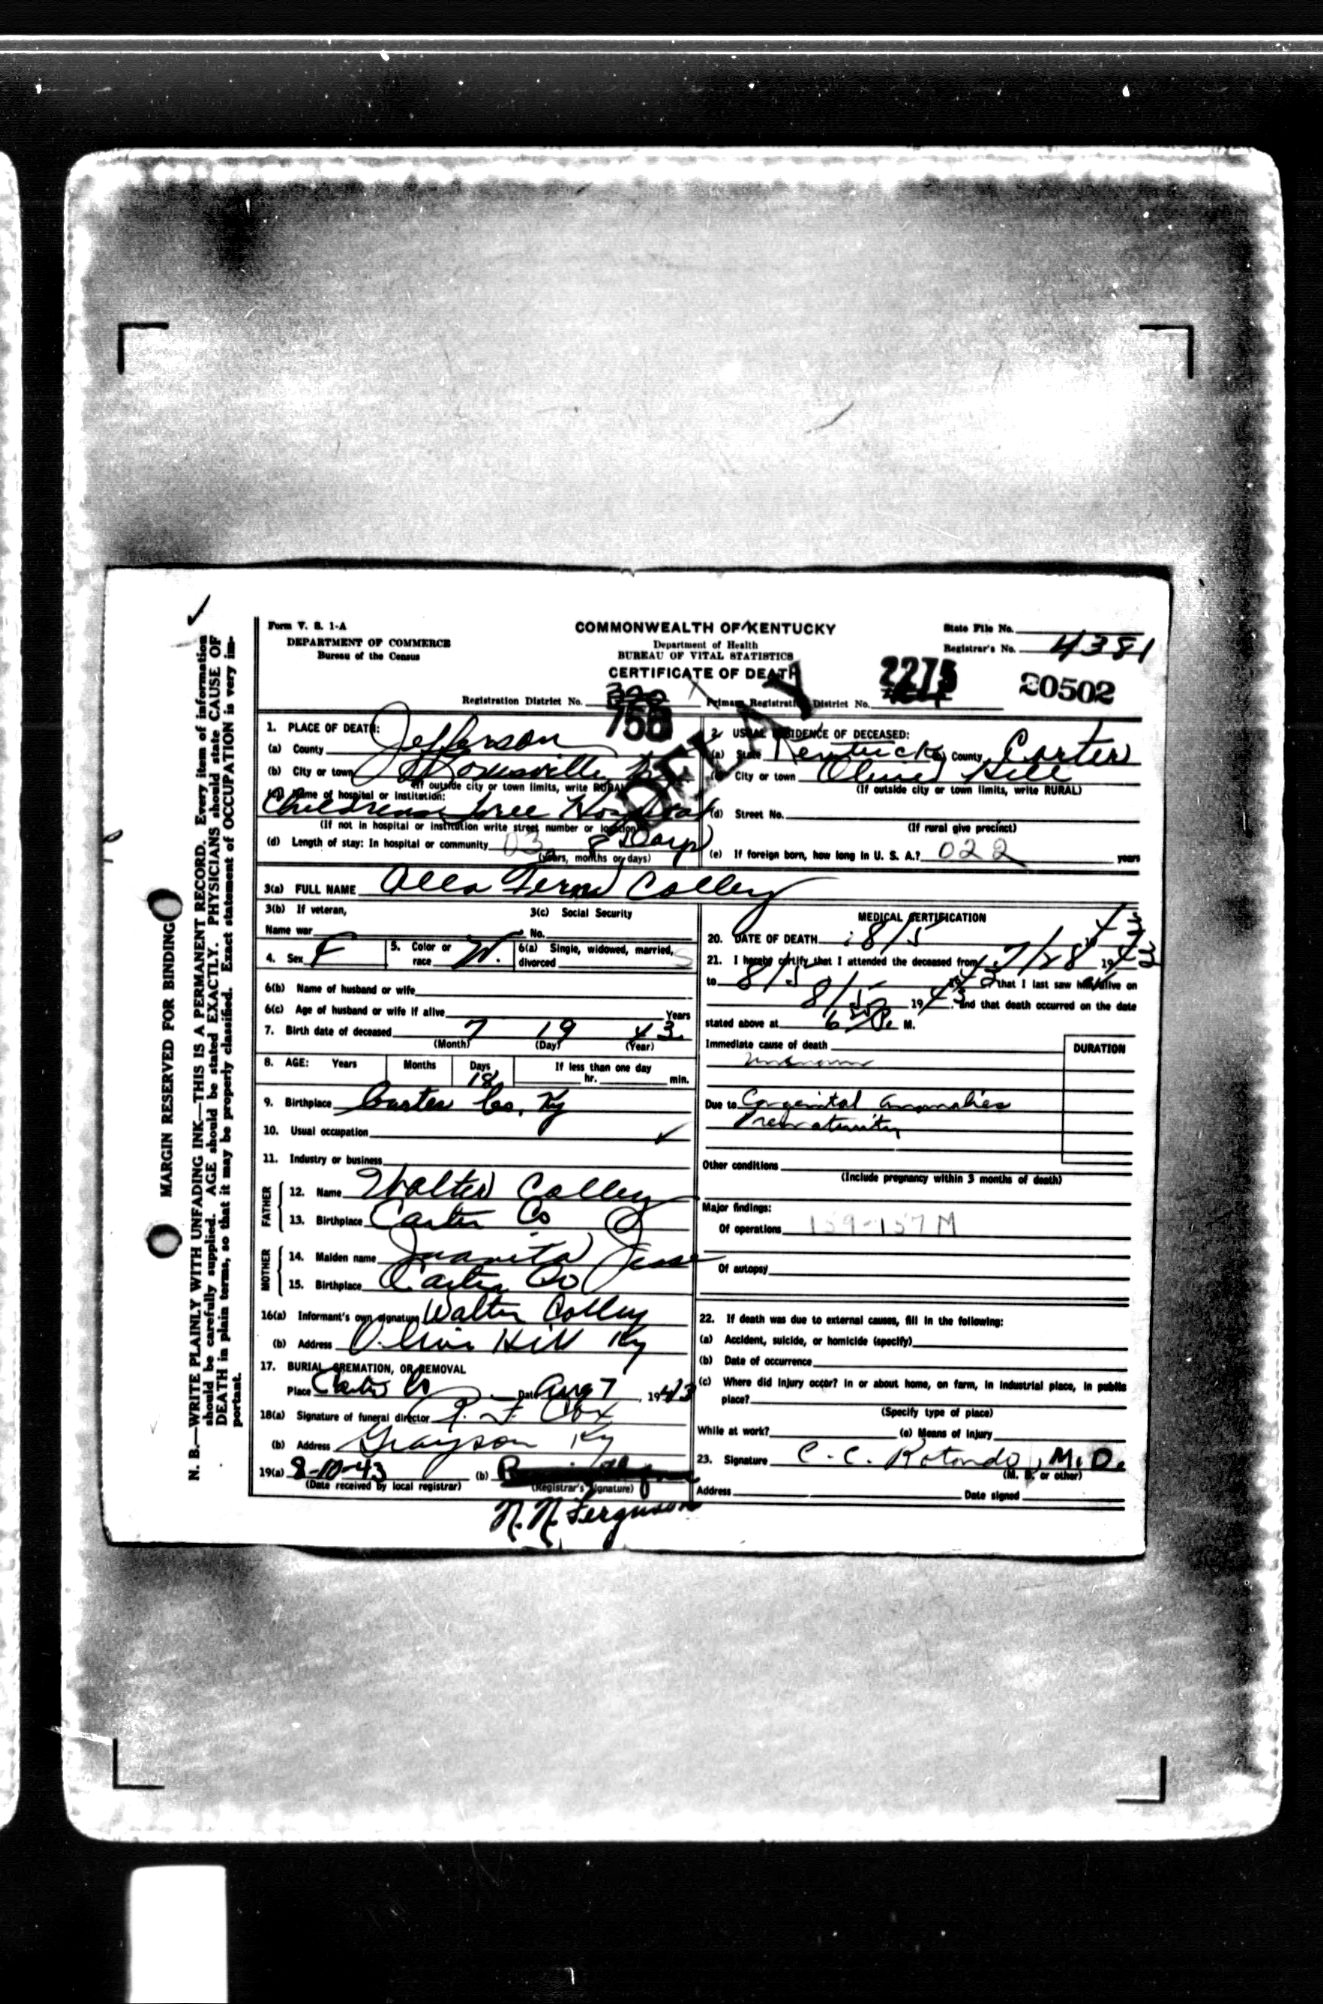 Form V. S. 1-A
DEPARTMENT OF COMMERCE
Bureau of the Census
COMMONWEALTH OF KENTUCKY
Department of Health
BUREAU OF VITAL STATISTICS
CERTIFICATE OF DEATH
State File No.
Registrar's No. 4381
Registration District No. 755
Primary Registration District No. 2275
20502
DELAY
1. PLACE OF DEATH:
(a) County Jefferson
(b) City or town Louisville Ky
(If outside city or town limits, write RURAL)
(c) Name of hospital or institution:
Childrens Free Hospital
(If not in hospital or institution write street number or location)
(d) Length of stay: In hospital or community 03 8 Days
(years, months or days)
2. USUAL RESIDENCE OF DECEASED:
(a) State Kentucky County Carter
City or town Olive Hill
(If outside city or town limits, write RURAL)
(d) Street No.
(If rural give precinct)
(e) If foreign born, how long in U. S. A.? 022 years
3(a) FULL NAME Alla Fern Colley
3(b) If veteran,
Name war
3(c) Social Security
No.
4. Sex F
5. Color or race W.
6(a) Single, widowed, married, divorced S
6(b) Name of husband or wife
6(c) Age of husband or wife if alive Years
7. Birth date of deceased 7 19 43
(Month) (Day) (Year)
8. AGE: Years Months Days If less than one day
18 hr. min.
9. Birthplace Carter Co, Ky
10. Usual occupation
11. Industry or business
FATHER
12. Name Walter Colley
13. Birthplace Carter Co
MOTHER
14. Maiden name Juanita Jesse
15. Birthplace Carter Co
16(a) Informant's own signature Walter Colley
(b) Address Olive Hill Ky
17. BURIAL, CREMATION, OR REMOVAL
Place Carter Co Date Aug 7, 1943
18(a) Signature of funeral director
(b) Address Grayson Ky
19(a) 8-10-43 (b)
(Date received by local registrar) (Registrar's signature)
N. N. Ferguson
MEDICAL CERTIFICATION
20. DATE OF DEATH 8/5 43
21. I hereby certify that I attended the deceased from 7/28 1943
to 8/5 1943 that I last saw alive on
8/5 1943 and that death occurred on the date
stated above at 6 50 P. M.
Immediate cause of death
DURATION
unknown
Due to Congenital anomalies
Prematurity
Other conditions
(Include pregnancy within 3 months of death)
Major findings:
Of operations 159-157M
Of autopsy
22. If death was due to external causes, fill in the following:
(a) Accident, suicide, or homicide (specify)
(b) Date of occurrence
(c) Where did injury occur? In or about home, on farm, in industrial place, in public
place?
(Specify type of place)
While at work? (e) Means of injury
23. Signature C. C. Rotondo, M.D.
(M. D. or other)
Address Date signed
MARGIN RESERVED FOR BINDING
N. B.—WRITE PLAINLY WITH UNFADING INK—THIS IS A PERMANENT RECORD. Every item of information
should be carefully supplied. AGE should be stated EXACTLY. PHYSICIANS should state CAUSE OF
DEATH in plain terms, so that it may be properly classified. Exact statement of OCCUPATION is very im-
portant.